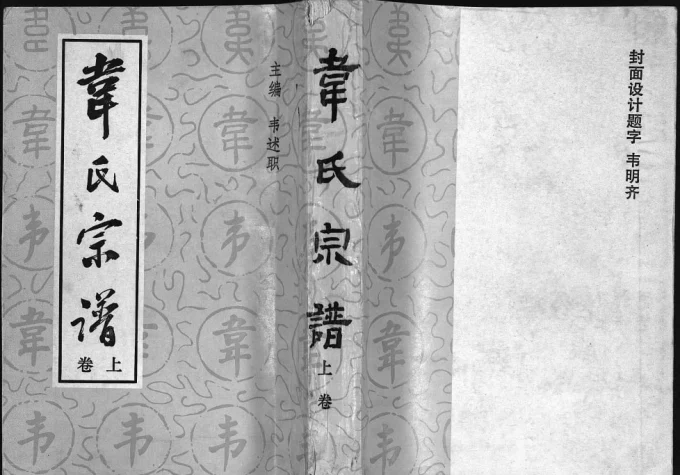 韋氏宗谱
上卷
主编 韦述职
韋氏宗譜
上卷
封面设计题字 韦明齐